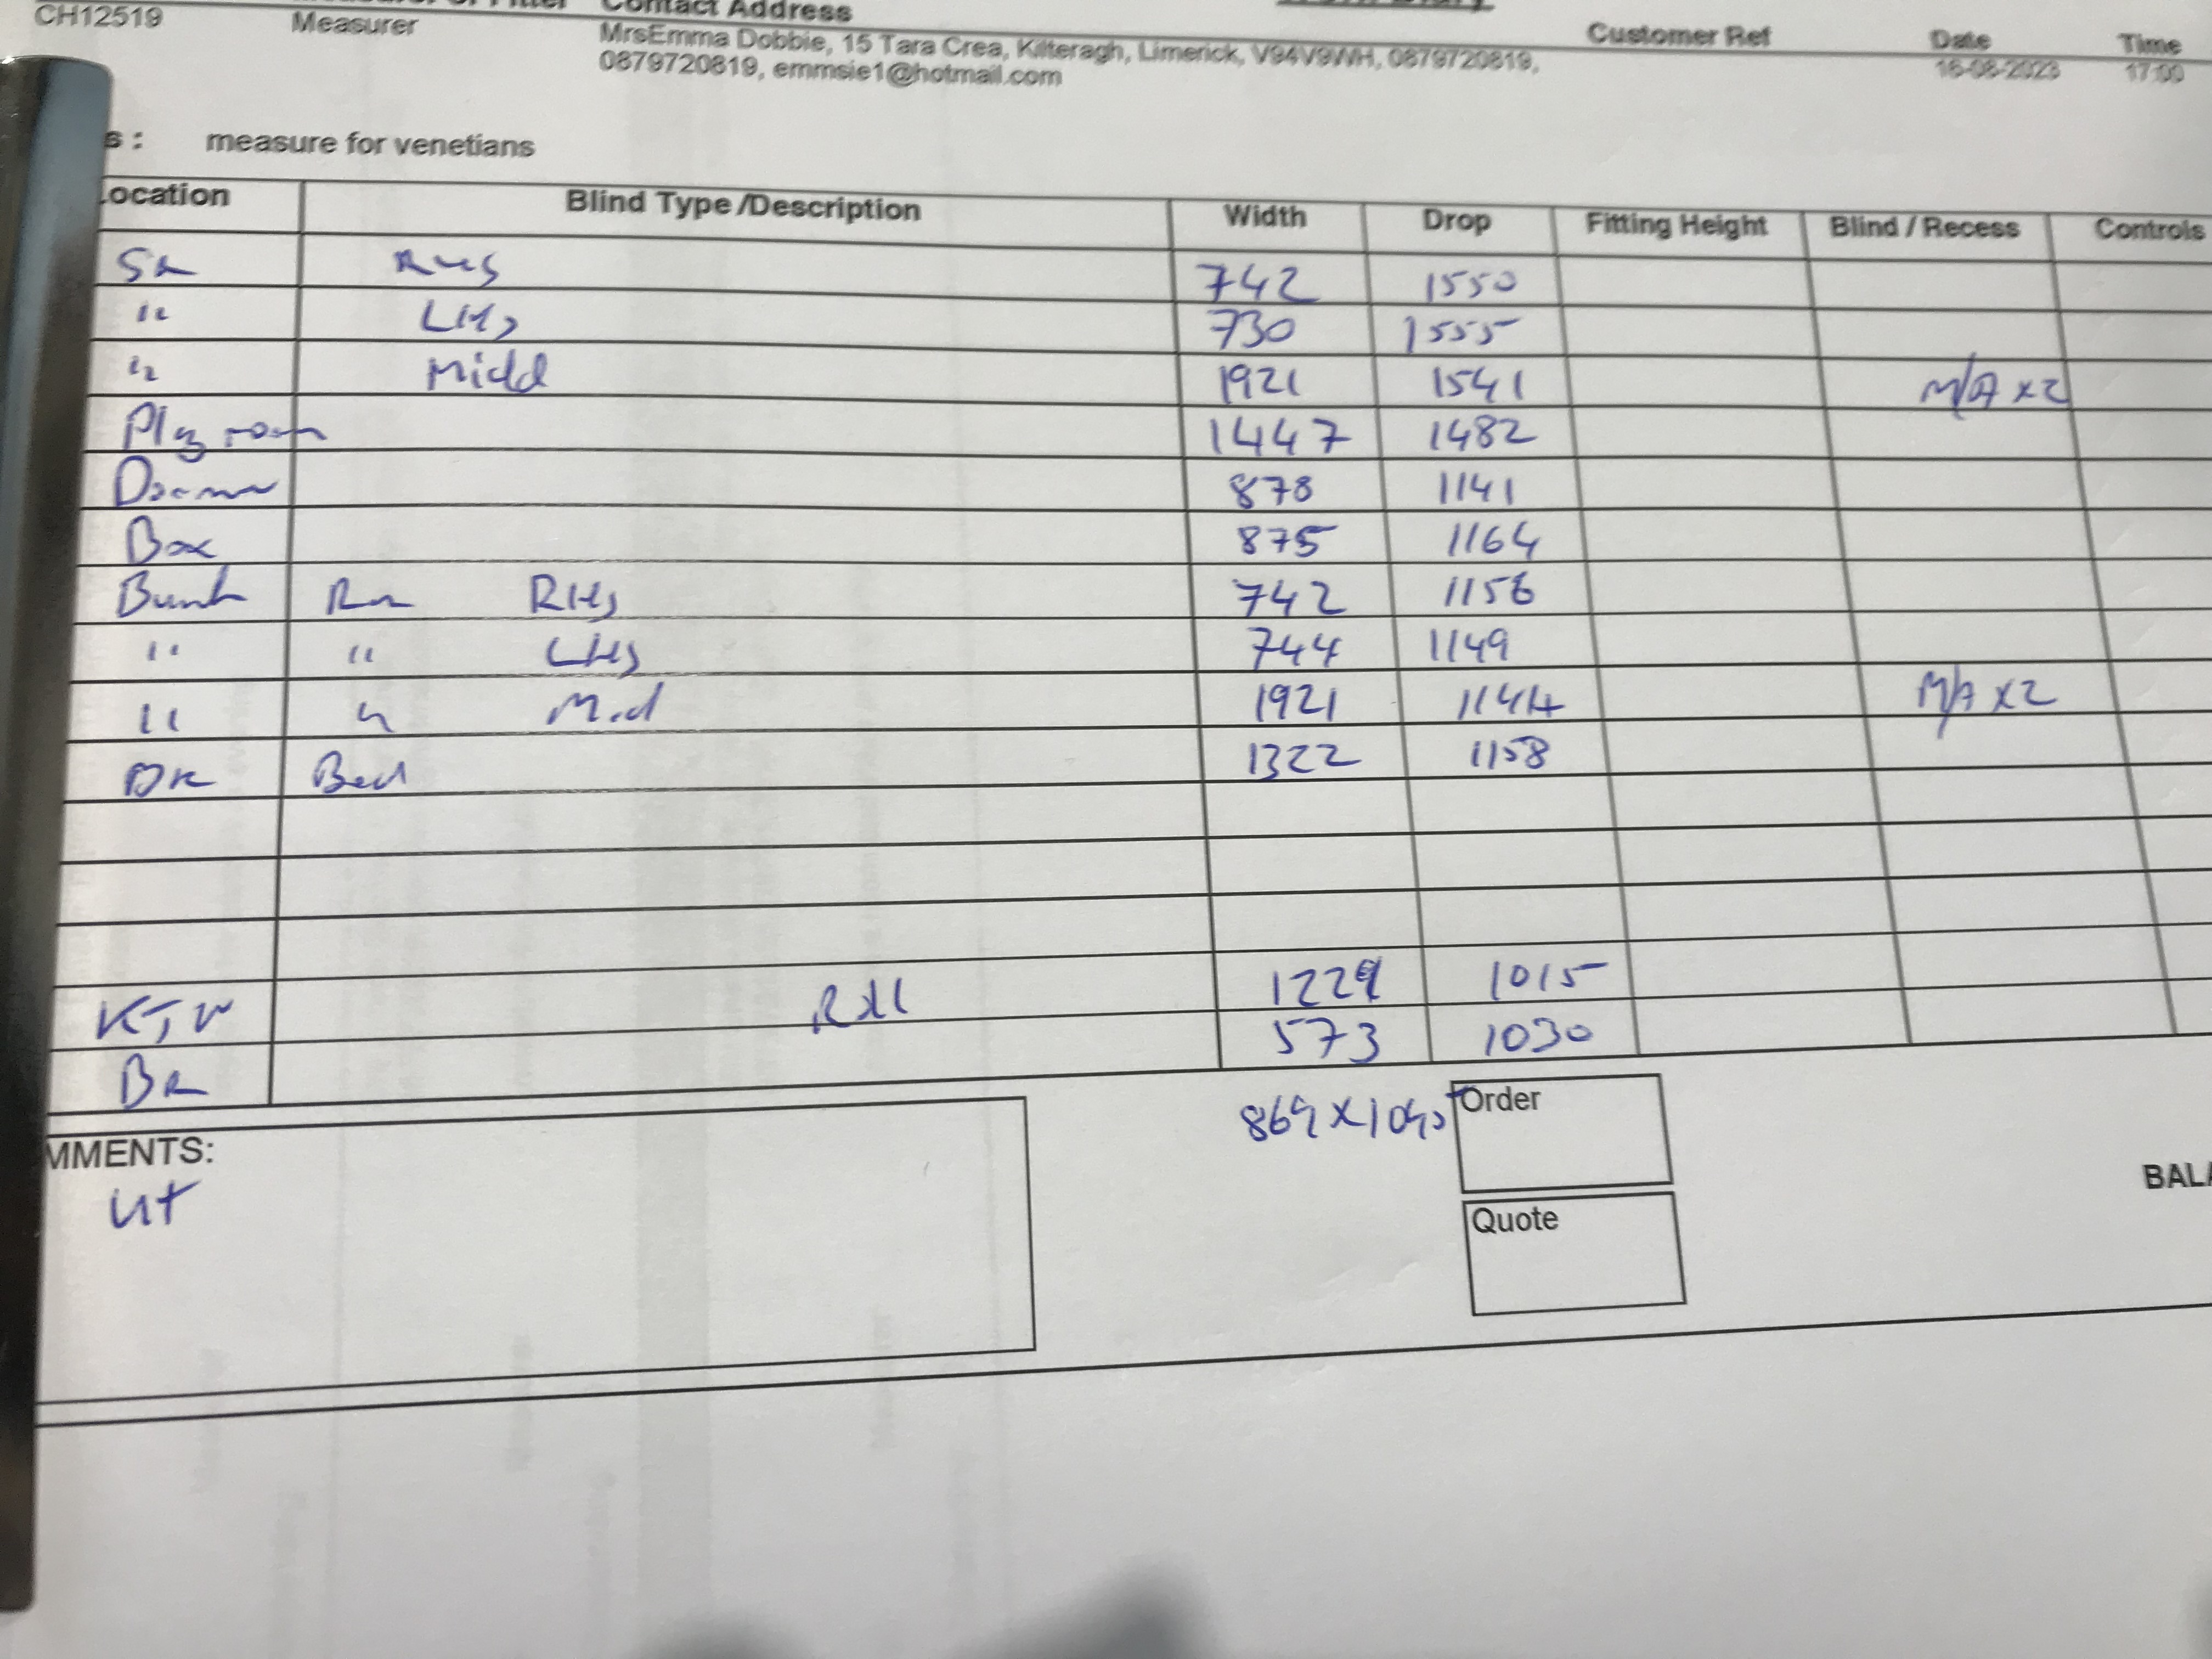 Contact Address
CH12519 Measurer MrsEmma Dobbie, 15 Tara Crea, Kilteragh, Limerick, V94V9WH, 0879720819, Customer Ref Date Time
0879720819, emmsie1@hotmail.com 16-08-2023 17:00
s : measure for venetians
Location Blind Type /Description Width Drop Fitting Height Blind / Recess Controls
RHS 742 1550
" LHS 730 1555
" Midd 1921 1541 M/A x2
Playroom 1447 1482
878 1141
Box 875 1164
Bunk Rm RHS 742 1156
" " LHS 744 1149
" " Mid 1921 1144 M/A X2
Bed 1322 1158
Roll 1015
573 1030
Order
MMENTS:
Quote
BALA